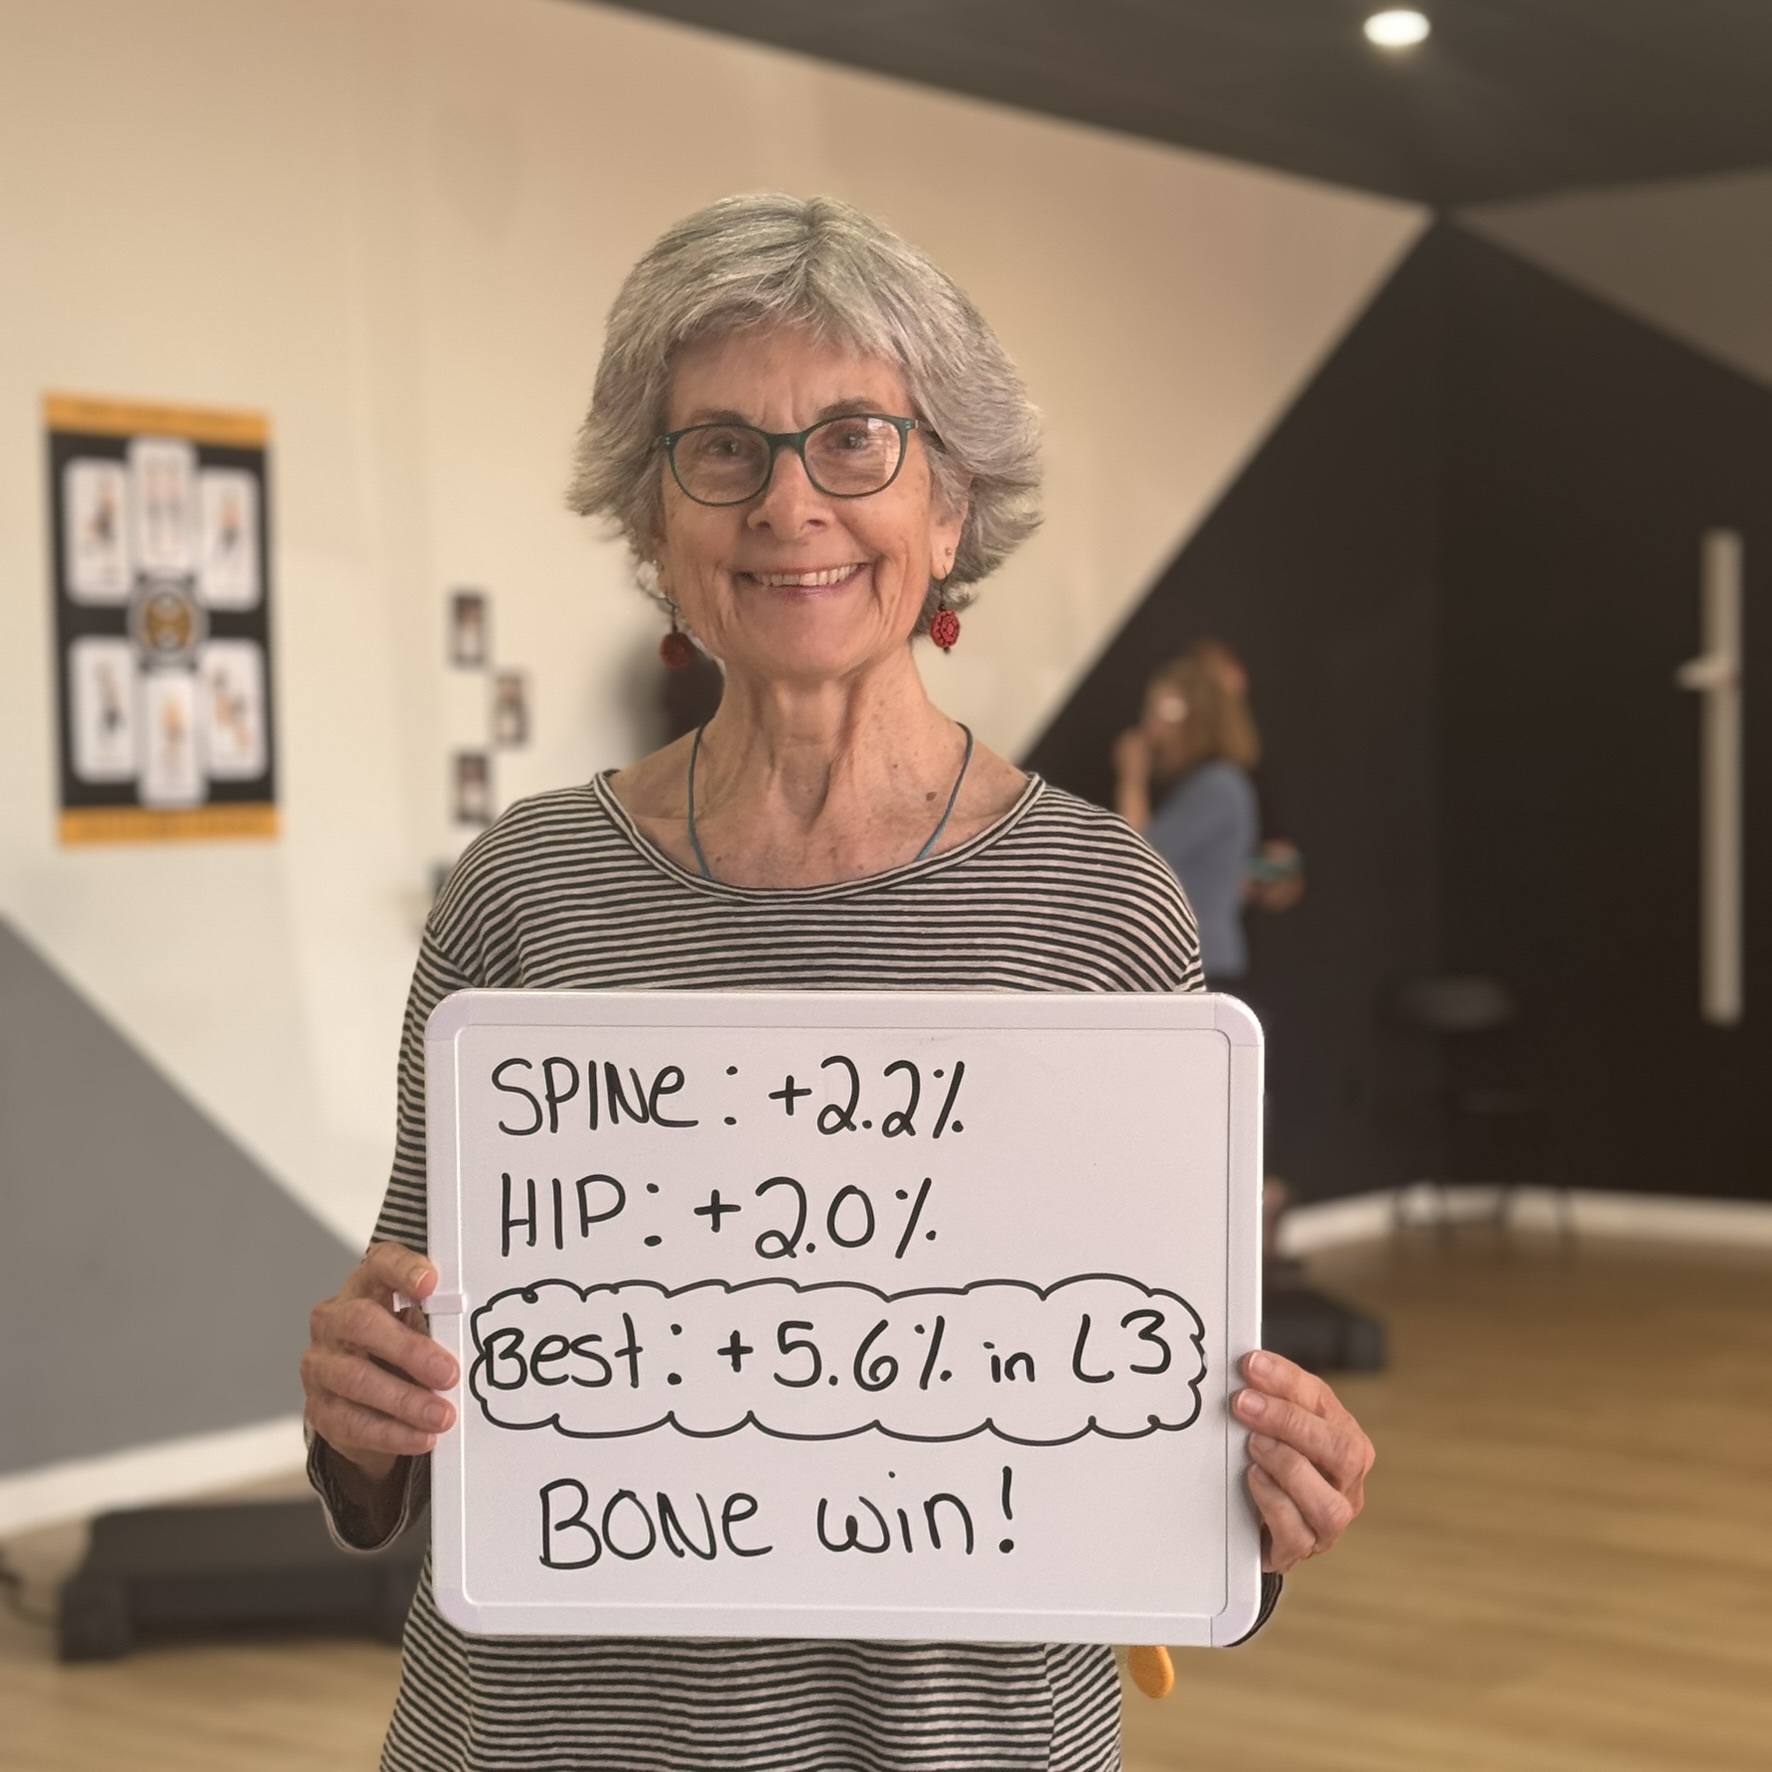 SPINe: +2.2%
HIP: +2.0%
Best: +5.6% in L3
BONe win!